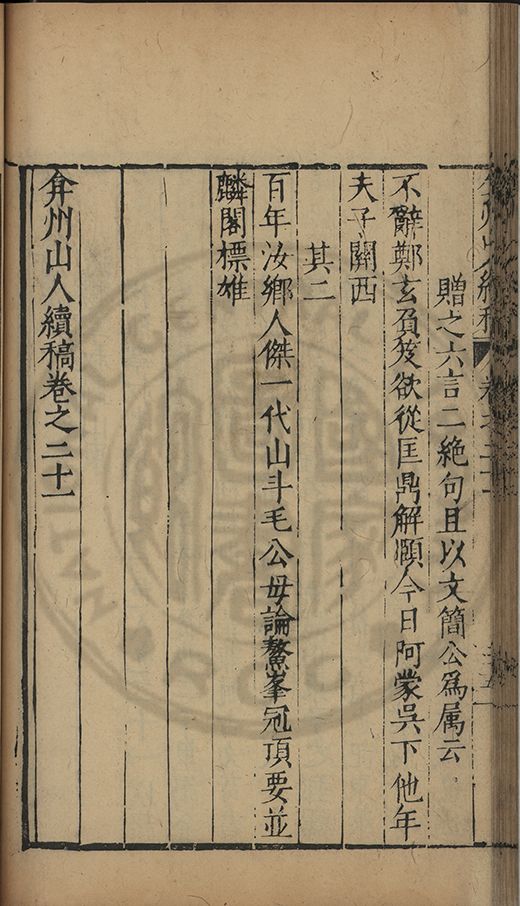 贈之六言二絶句且以文簡公爲属云
不辭鄭玄負笈欲從匡鼎解頤今日阿蒙吳下他年
夫子關西
其二
百年汝鄉人傑一代山斗毛公毋論鰲峯冠頂要並
麟閣標雄
弇州山人續稿卷之二十一